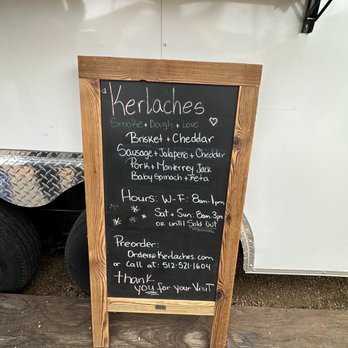 Kerlaches
Smoke + Dough + Love
Brisket + Cheddar
Sausage + Jalapeño + Cheddar
Pork + Monterrey Jack
Baby Spinach + Feta
Hours: W-F: 8am-1pm
Sat + Sun: 8am-3pm
or until Sold Out
Preorder:
Order@Kerlaches.com
or Call at: 512-521-1604
thank
you for your Visit